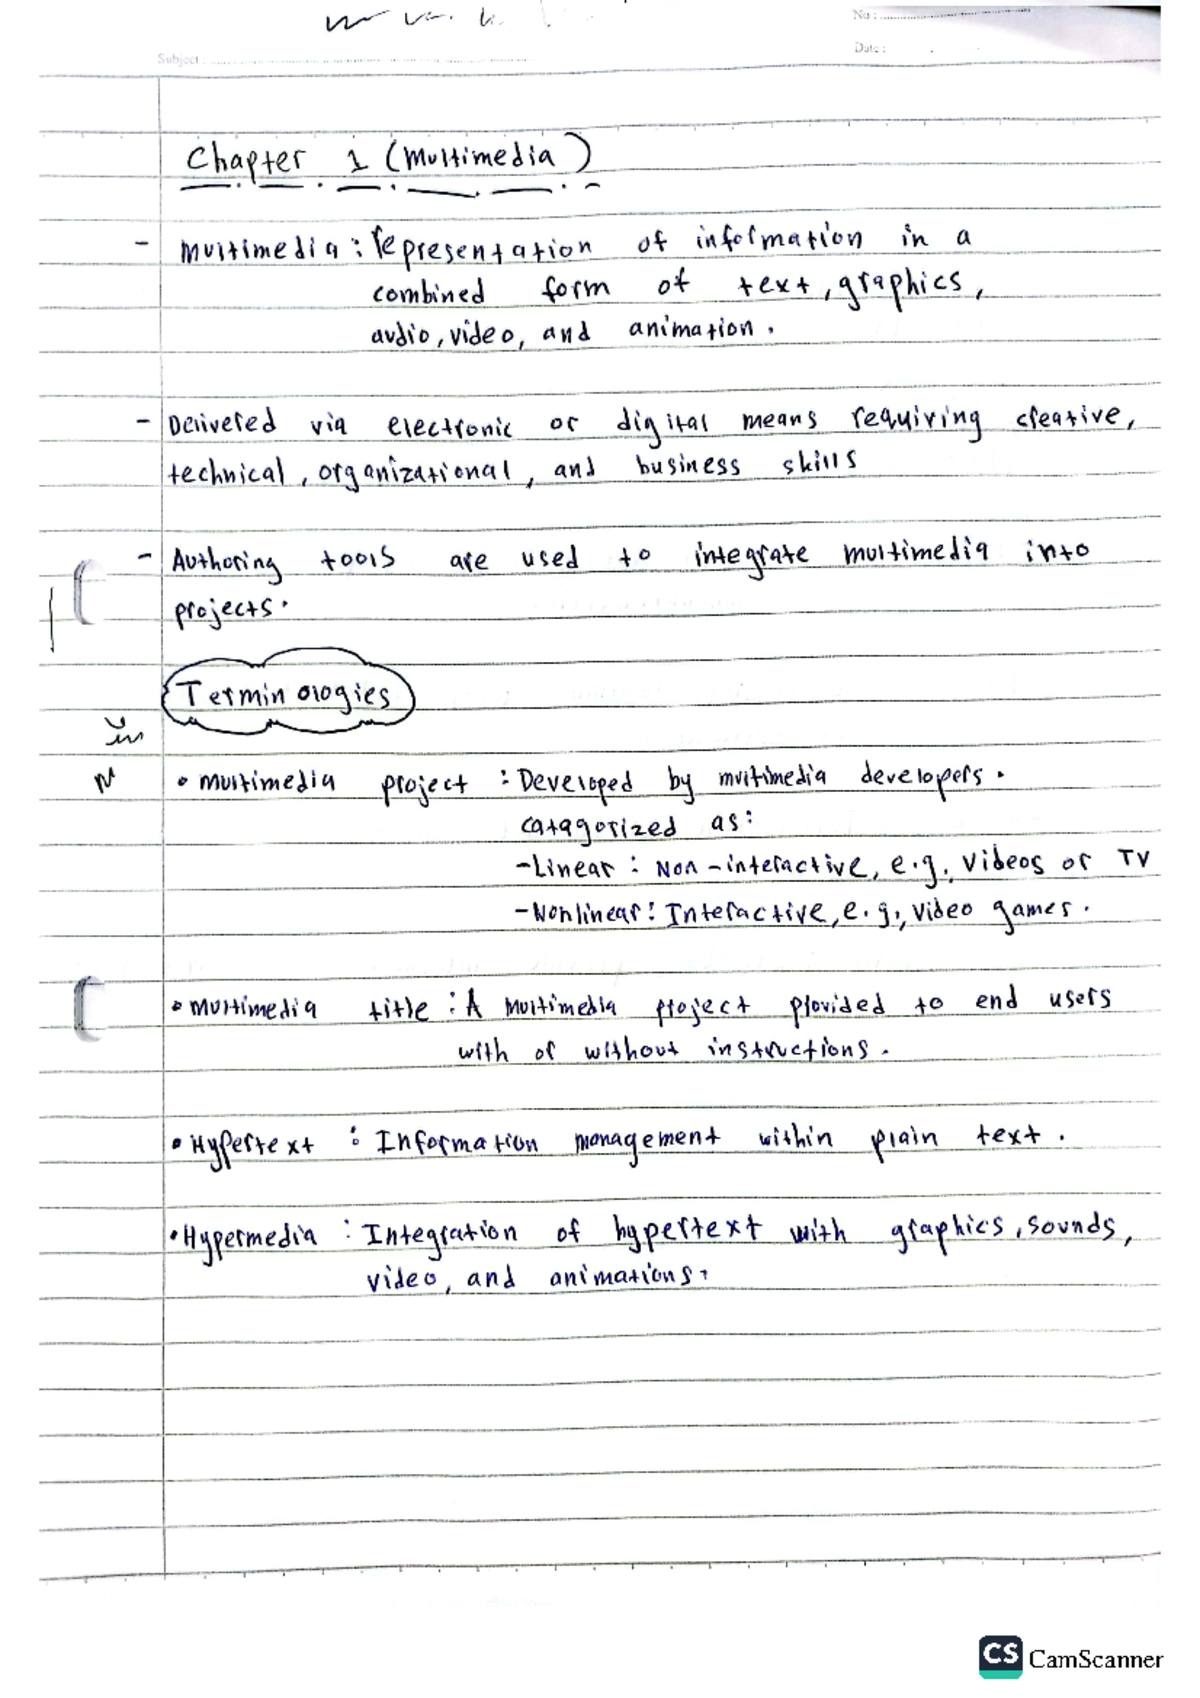 No :
Date :
Subject :
Chapter 1 (Multimedia)
- Multimedia : representation of information in a
combined form of text, graphics,
audio, video, and animation.
- Delivered via electronic or digital means requiring creative,
technical, organizational, and business skills
- Authoring tools are used to integrate multimedia into
projects.
Terminologies
• Multimedia project : Developed by multimedia developers.
catagorized as:
- Linear : Non-interactive, e.g., Videos or TV
- Nonlinear: Interactive, e.g., video games.
• Multimedia title : A Multimedia project provided to end users
with or without instructions.
• Hypertext : Information management within plain text.
• Hypermedia : Integration of hypertext with graphics, sounds,
video, and animations.
CS CamScanner